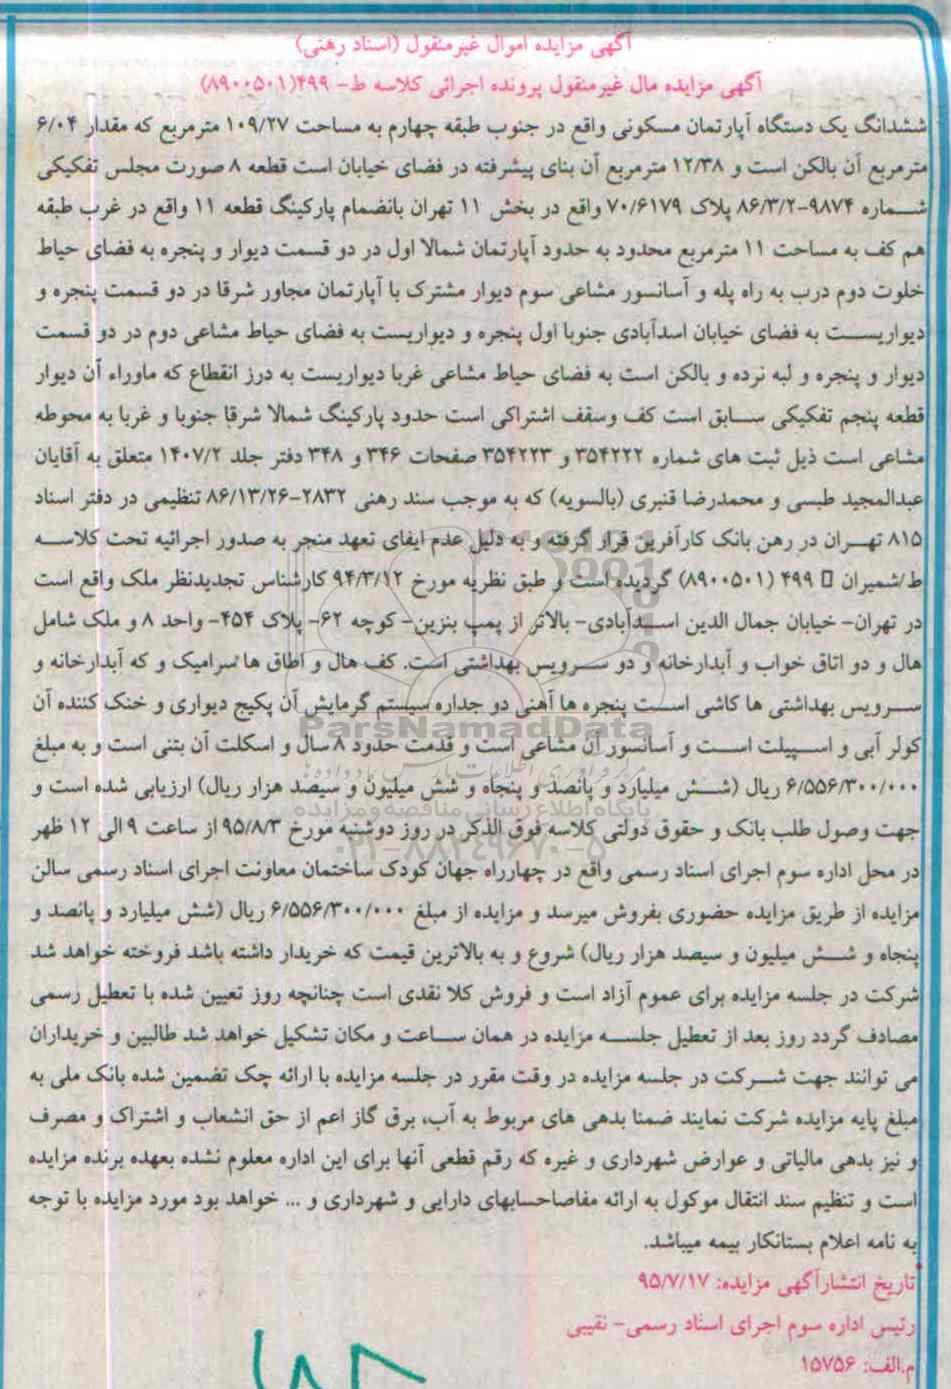 آگهی مزایده اموال غیرمنقول (اسناد رهنی)
آگهی مزایده مال غیرمنقول پرونده اجرائی کلاسه ط- ۴۹۹(۸۹۰۰۵۰۱)
ششدانگ یک دستگاه آپارتمان مسکونی واقع در جنوب طبقه چهارم به مساحت ۱۰۹/۲۷ مترمربع که مقدار ۶/۰۴
مترمربع آن بالکن است و ۱۲/۳۸ مترمربع آن بنای پیشرفته در فضای خیابان است قطعه ۸ صورت مجلس تفکیکی
شماره ۹۸۷۴-۸۶/۳/۲ پلاک ۷۰/۶۱۷۹ واقع در بخش ۱۱ تهران بانضمام پارکینگ قطعه ۱۱ واقع در غرب طبقه
هم کف به مساحت ۱۱ مترمربع محدود به حدود آپارتمان شمالا اول در دو قسمت دیوار و پنجره به فضای حیاط
خلوت دوم درب به راه پله و آسانسور مشاعی سوم دیوار مشترک با آپارتمان مجاور شرقا در دو قسمت پنجره و
دیواریست به فضای خیابان اسدآبادی جنوبا اول پنجره و دیواریست به فضای حیاط مشاعی دوم در دو قسمت
دیوار و پنجره و لبه نرده و بالکن است به فضای حیاط مشاعی غربا دیواریست به درز انقطاع که ماوراء آن دیوار
قطعه پنجم تفکیکی سابق است کف وسقف اشتراکی است حدود پارکینگ شمالا شرقا جنوبا و غربا به محوطه
مشاعی است ذیل ثبت های شماره ۳۵۴۲۲۲ و ۳۵۴۲۲۳ صفحات ۳۴۶ و ۳۴۸ دفتر جلد ۱۴۰۷/۲ متعلق به آقایان
عبدالمجید طبسی و محمدرضا قنبری (بالسویه) که به موجب سند رهنی ۲۸۳۲-۸۶/۱۳/۲۶ تنظیمی در دفتر اسناد
۸۱۵ تهران در رهن بانک کارآفرین قرار گرفته و به دلیل عدم ایفای تعهد منجر به صدور اجرائیه تحت کلاسه
ط/شمیران ▯ ۴۹۹ (۸۹۰۰۵۰۱) گردیده است و طبق نظریه مورخ ۹۴/۳/۱۲ کارشناس تجدیدنظر ملک واقع است
در تهران- خیابان جمال الدین اسدآبادی- بالاتر از پمپ بنزین- کوچه ۶۲- پلاک ۴۵۴- واحد ۸ و ملک شامل
هال و دو اتاق خواب و آبدارخانه و دو سرویس بهداشتی است. کف هال و اطاق ها سرامیک و که آبدارخانه و
سرویس بهداشتی ها کاشی است پنجره ها آهنی دو جداره سیستم گرمایش آن پکیج دیواری و خنک کننده آن
ParsNamadData
کولر آبی و اسپیلت است و آسانسور آن مشاعی است و قدمت حدود ۸ سال و اسکلت آن بتنی است و به مبلغ
مرکز فرآوری اطلاعات پارس نماد داده ها
۶/۵۵۶/۳۰۰/۰۰۰ ریال (شش میلیارد و پانصد و پنجاه و شش میلیون و سیصد هزار ریال) ارزیابی شده است و
پایگاه اطلاع رسانی مناقصه و مزایده
جهت وصول طلب بانک و حقوق دولتی کلاسه فوق الذکر در روز دوشنبه مورخ ۹۵/۸/۳ از ساعت ۹ الی ۱۲ ظهر
۰۲۱-۸۸۳۴۹۶۷۰-۵
در محل اداره سوم اجرای اسناد رسمی واقع در چهارراه جهان کودک ساختمان معاونت اجرای اسناد رسمی سالن
مزایده از طریق مزایده حضوری بفروش میرسد و مزایده از مبلغ ۶/۵۵۶/۳۰۰/۰۰۰ ریال (شش میلیارد و پانصد و
پنجاه و شش میلیون و سیصد هزار ریال) شروع و به بالاترین قیمت که خریدار داشته باشد فروخته خواهد شد
شرکت در جلسه مزایده برای عموم آزاد است و فروش کلا نقدی است چنانچه روز تعیین شده با تعطیل رسمی
مصادف گردد روز بعد از تعطیل جلسه مزایده در همان ساعت و مکان تشکیل خواهد شد طالبین و خریداران
می توانند جهت شرکت در جلسه مزایده در وقت مقرر در جلسه مزایده با ارائه چک تضمین شده بانک ملی به
مبلغ پایه مزایده شرکت نمایند ضمنا بدهی های مربوط به آب، برق گاز اعم از حق انشعاب و اشتراک و مصرف
و نیز بدهی مالیاتی و عوارض شهرداری و غیره که رقم قطعی آنها برای این اداره معلوم نشده بعهده برنده مزایده
است و تنظیم سند انتقال موکول به ارائه مفاصاحسابهای دارایی و شهرداری و ... خواهد بود مورد مزایده با توجه
به نامه اعلام بستانکار بیمه میباشد.
تاریخ انتشارآگهی مزایده: ۹۵/۷/۱۷
رئیس اداره سوم اجرای اسناد رسمی- نقیبی
م.الف: ۱۵۷۵۶